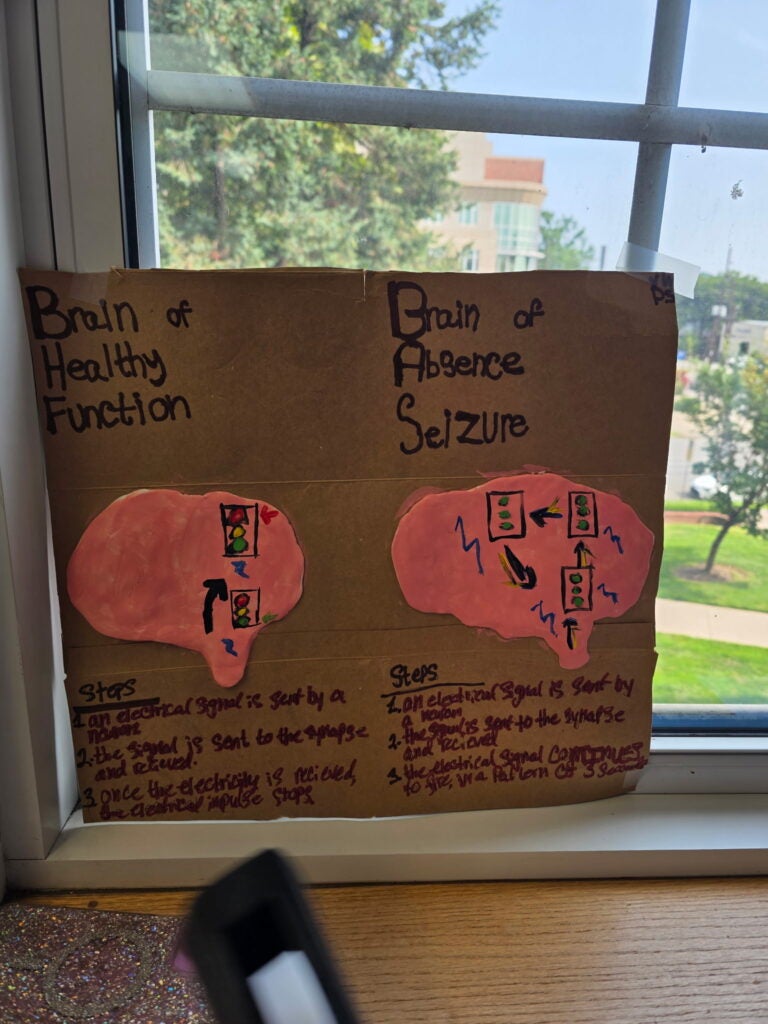 Brain of
Healthy
Function
Brain of
Absence
Seizure
Steps
1. an electrical signal is sent by a
neuron
2. the signal is sent to the synapse
and recieved.
3. once the electricity is recieved,
the electrical impulse stops
Steps
1. an electrical signal is sent by
a neuron
2. the signal is sent to the synapse
and recieved
3. the electrical signal CONTINUES
to fire, in a pattern of 3 seconds